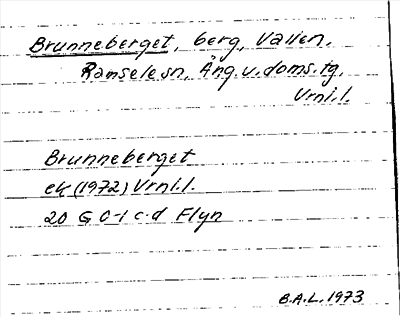 Brunneberget, berg, Vallen,
Ramsele sn, Ång. v. doms. tg,
Vrnl.l.
Brunneberget
ek (1972) Vrnl.l.
20 G 0-1 c-d Flyn
B.A.L. 1973